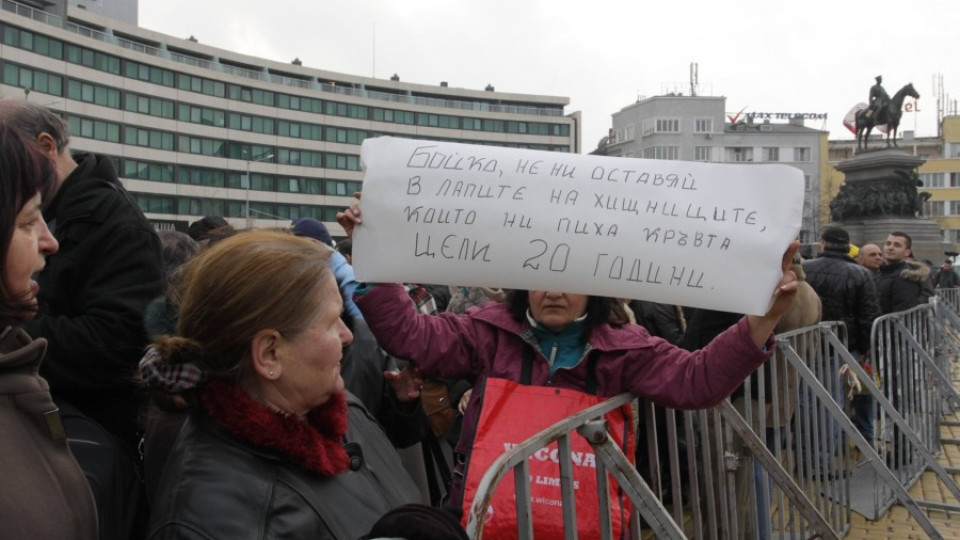 БОЙКО, НЕ НИ ОСТАВЯЙ
В ЛАПИТЕ НА ХИЩНИЦИТЕ,
КОИТО НИ ПИХА КРЪВТА
ЦЕЛИ 20 ГОДИНИ.
MAX TELECOM
WICONA
NO LIMITS
www.wicona